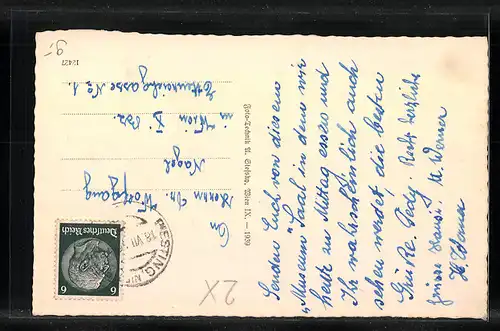 Senden Euch von diesem
"Museum" Saal in dem wir
heute zu Mittag essen und
Ihr wahrscheinlich auch
sehen werdet die besten
Grüße. Pedy. Recht herzliche
Grüsse Hansi. U. Werner
H. Werner
Foto-Technik A. Stefsky, Wien IX. — 1939
An
Herrn Dr. Wolfgang
Nagel
in Wien X.
No 1.
12427
9.-
2X
Deutsches Reich
6 6
18.VII
PIESTING